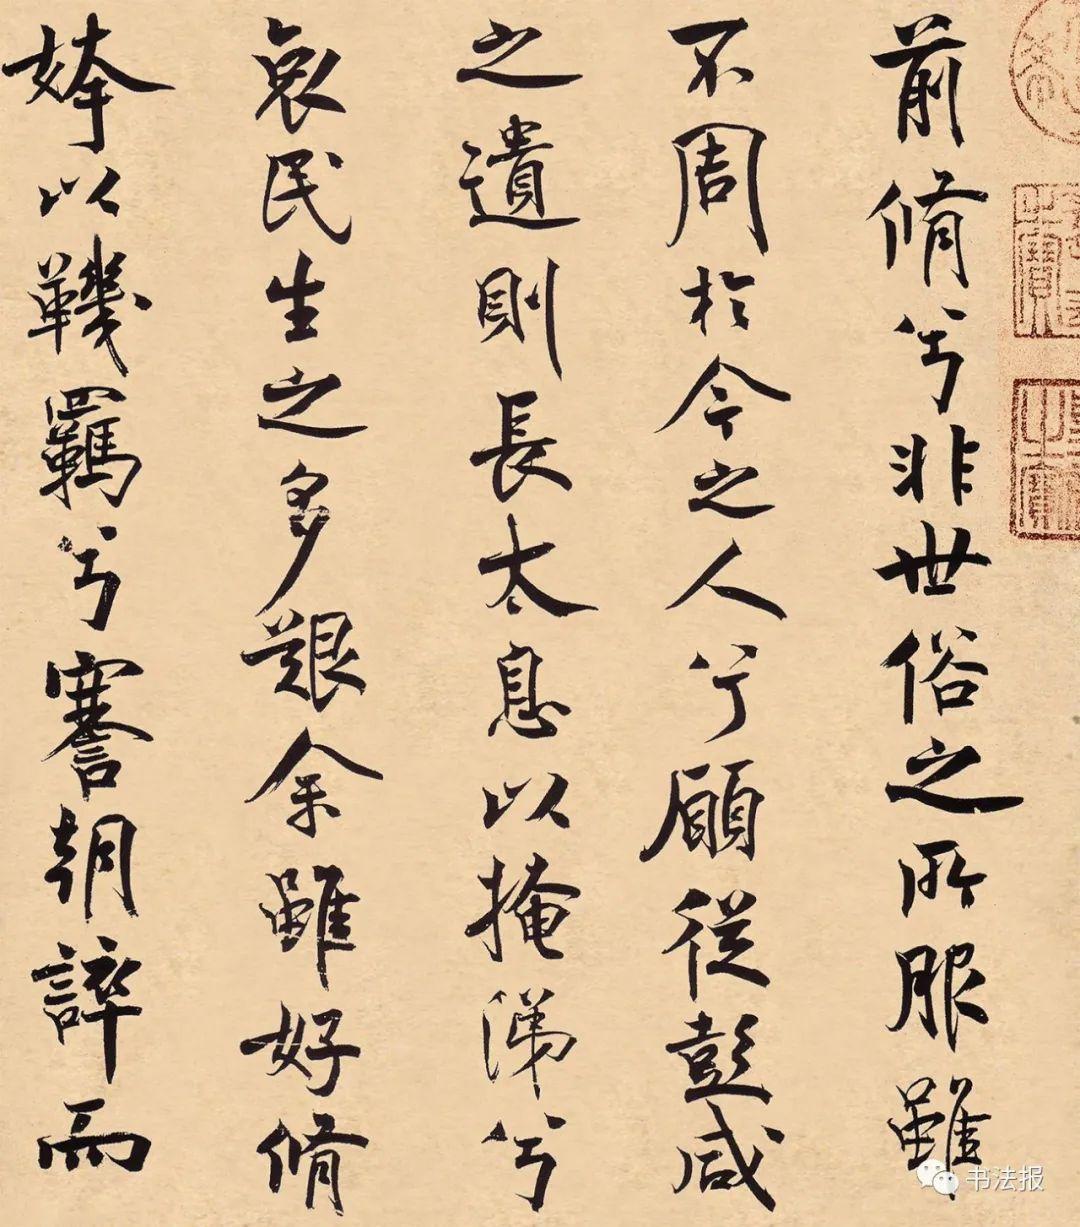 前脩兮非世俗之所服雖
不周於今之人兮願從彭咸
之遺則長太息以掩涕兮
哀民生之多艱余雖好脩
姱以鞿羈兮謇朝誶而
书法报